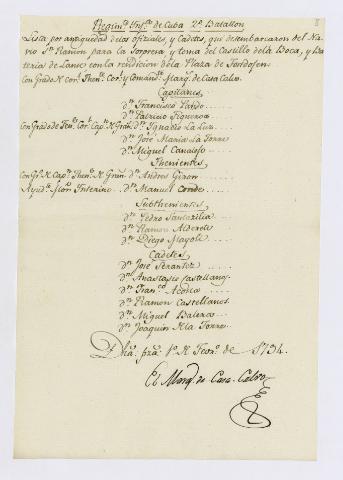 Regimto. Infa. de Cuba 2º. Batallon
Lista por antiguedad de los oficiales, y Cadetes, que desembarcaron del Na-
vio Sn. Ramon para la Sorpresa, y toma del Castillo de la Boca, y Ba-
terias de con la rendicion de la Plaza de
Con Grado de Corl. Thente. Cor. y Comandte. Marqs. de Casa Calvo.
Capitanes
Dn. Francisco Pardo
Dn. Patricio Figueroa
Con Grado de Tente. Corl. Capn. de Grans. Dn. Ignacio La Luz
Dn. Jose Maria la Torre
Dn. Miguel
Thenientes
Con Gdo. de Capn. Thente. de Grans. Dn. Andres Giron
Ayudte. Mor. Interino Dn. Manuel Conde
Subthenientes
Dn. Pedro Santizilia
Dn. Ramon Alderete
Dn. Diego
Cadetes
Dn. Jose
Dn. Anastasio Castellanos
Dn. Franco.
Dn. Ramon Castellanos
Dn. Miguel
Dn. Joaquin de la Torre
1º. de Febro. de 1794.
El Marqs. de Casa Calvo